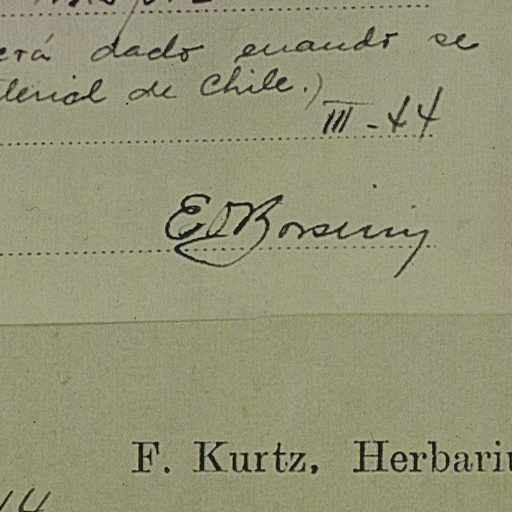 erá dado cuando se
terial de Chile.)
III - 44
EO Borsini
F. Kurtz. Herbariu